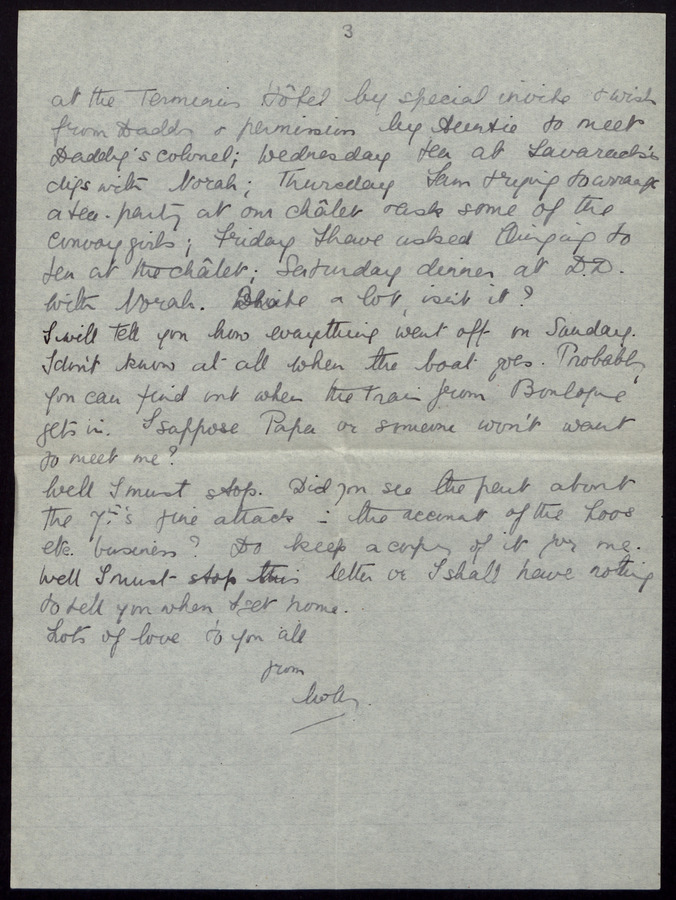 3
at the Terminus Hôtel by special invite & wish
from Daddy & permission by Auntie to meet
Daddy's colonel; Wednesday tea at Lavarack's
digs with Norah; Thursday I am trying to arrange
a tea-party at our châlet & ask some of the
convoy girls; Friday I have asked to
tea at the châlet; Saturday dinner at D.D.
with Norah. Quite a lot, isn't it?
I will tell you how everything went off on Sunday.
I don't know at all when the boat goes. Probably
you can find out when the train from Boulogne
gets in. I suppose Papa or someone won't want
to meet me?
Well I must stop. Did you see the part about
the 7th's fine attack - the account of the Loos
etc. business? Do keep a copy of it for me.
Well I must stop this letter or I shall have nothing
to tell you when I get home.
Lots of love to you all
from
Molly.